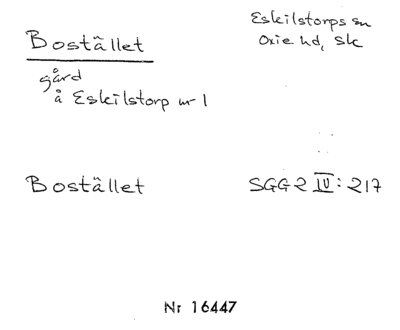 Boställlet
Eskilstorps sn
Oxie hd, Sk
gård
å Eskilstorp nr 1
Bostället
SGG 2 IV: 217
Nr 16447